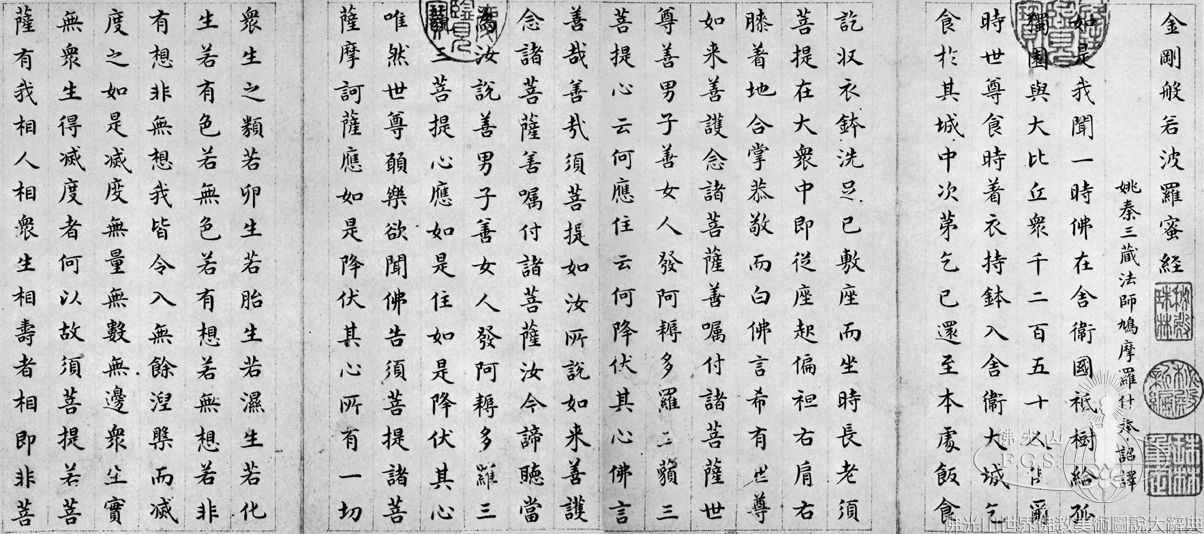 金剛般若波羅蜜経
姚秦三蔵法師鳩摩羅什奉詔譯
如是我聞一時佛在舍衛國祗樹給孤
獨園與大比丘衆千二百五十人俱爾
時世尊食時着衣持鉢入舍衛大城乞
食於其城中次第乞已還至本處飯食
訖収衣鉢洗足已敷座而坐時長老須
菩提在大衆中即従座起偏袒右肩右
膝着地合掌恭敬而白佛言希有世尊
如来善護念諸菩薩善嘱付諸菩薩世
尊善男子善女人發阿耨多羅三藐三
菩提心云何應住云何降伏其心佛言
善哉善哉須菩提如汝所說如来善護
念諸菩薩善嘱付諸菩薩汝今諦聽當
為汝說善男子善女人發阿耨多羅三
藐三菩提心應如是住如是降伏其心
唯然世尊願樂欲聞佛告須菩提諸菩
薩摩訶薩應如是降伏其心所有一切
衆生之類若卵生若胎生若濕生若化
生若有色若無色若有想若無想若非
有想非無想我皆令入無餘涅槃而滅
度之如是滅度無量無數無邊衆生實
無衆生得滅度者何以故須菩提若菩
薩有我相人相衆生相壽者相即非菩
佛光山
FGS
佛光山世界佛教美術圖說大辭典